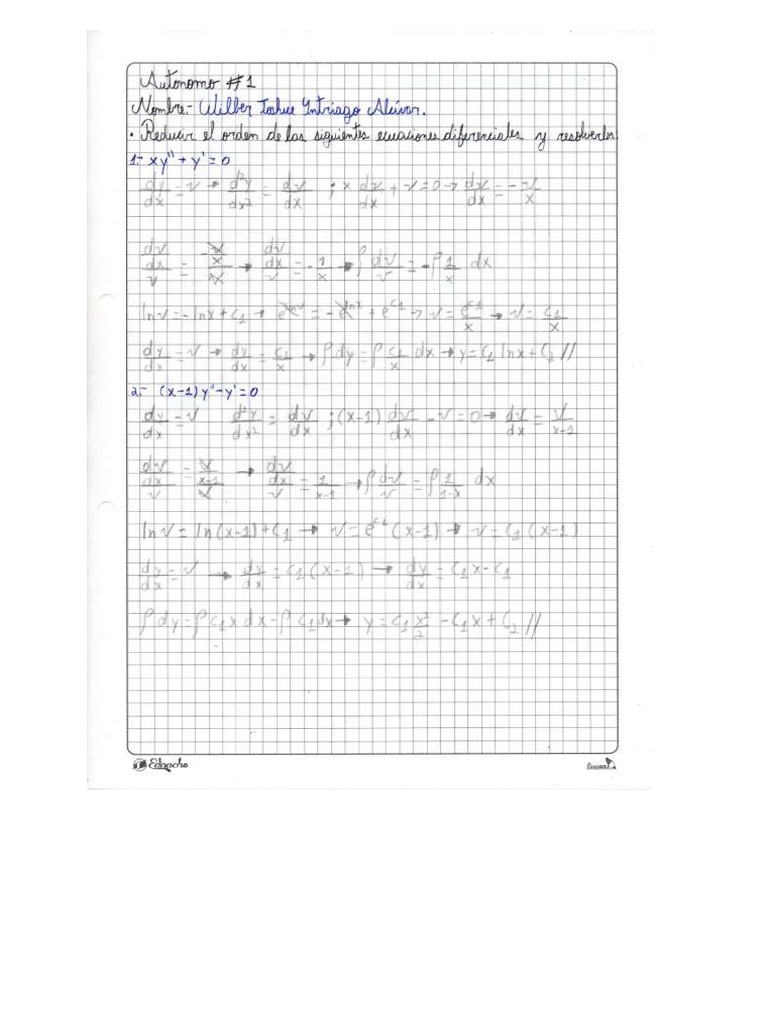 Autonomo #1
Nombre:- Wilber Joshue Intriago Alcívar.
• Reducir el orden de las siguientes ecuaciones diferenciales y resolverlos
1.- xy'' + y' = 0
dy/dx = v → d²y/dx² = dv/dx ; x dv/dx + v = 0 → dv/dx = -v/x
(dv/dx)/v = (-v/x)/v → (dv/dx)/v = -1/x → ∫ dv/v = -∫ 1/x dx
ln v = -ln x + c1 → e^ln v = -e^ln x + e^c1 → v = e^c1/x → v = c1/x
dy/dx = v → dy/dx = c1/x → ∫ dy = ∫ c1/x dx → y = c1 ln x + c2 //
2.- (x-1) y'' - y' = 0
dy/dx = v d²y/dx² = dv/dx ; (x-1) dv/dx - v = 0 → dv/dx = v/x-1
(dv/dx)/v = (v/x-1)/v → (dv/dx)/v = 1/x-1 → ∫ dv/v = ∫ 1/1-x dx
ln v = ln (x-1) + c1 → v = e^c1 (x-1) → v = c1 (x-1)
dy/dx = v → dy/dx = c1 (x-1) → dy/dx = c1x - c1
∫ dy = ∫ c1x dx - ∫ c1 dx → y = c1 x²/2 - c1x + c2 //
Ednacho